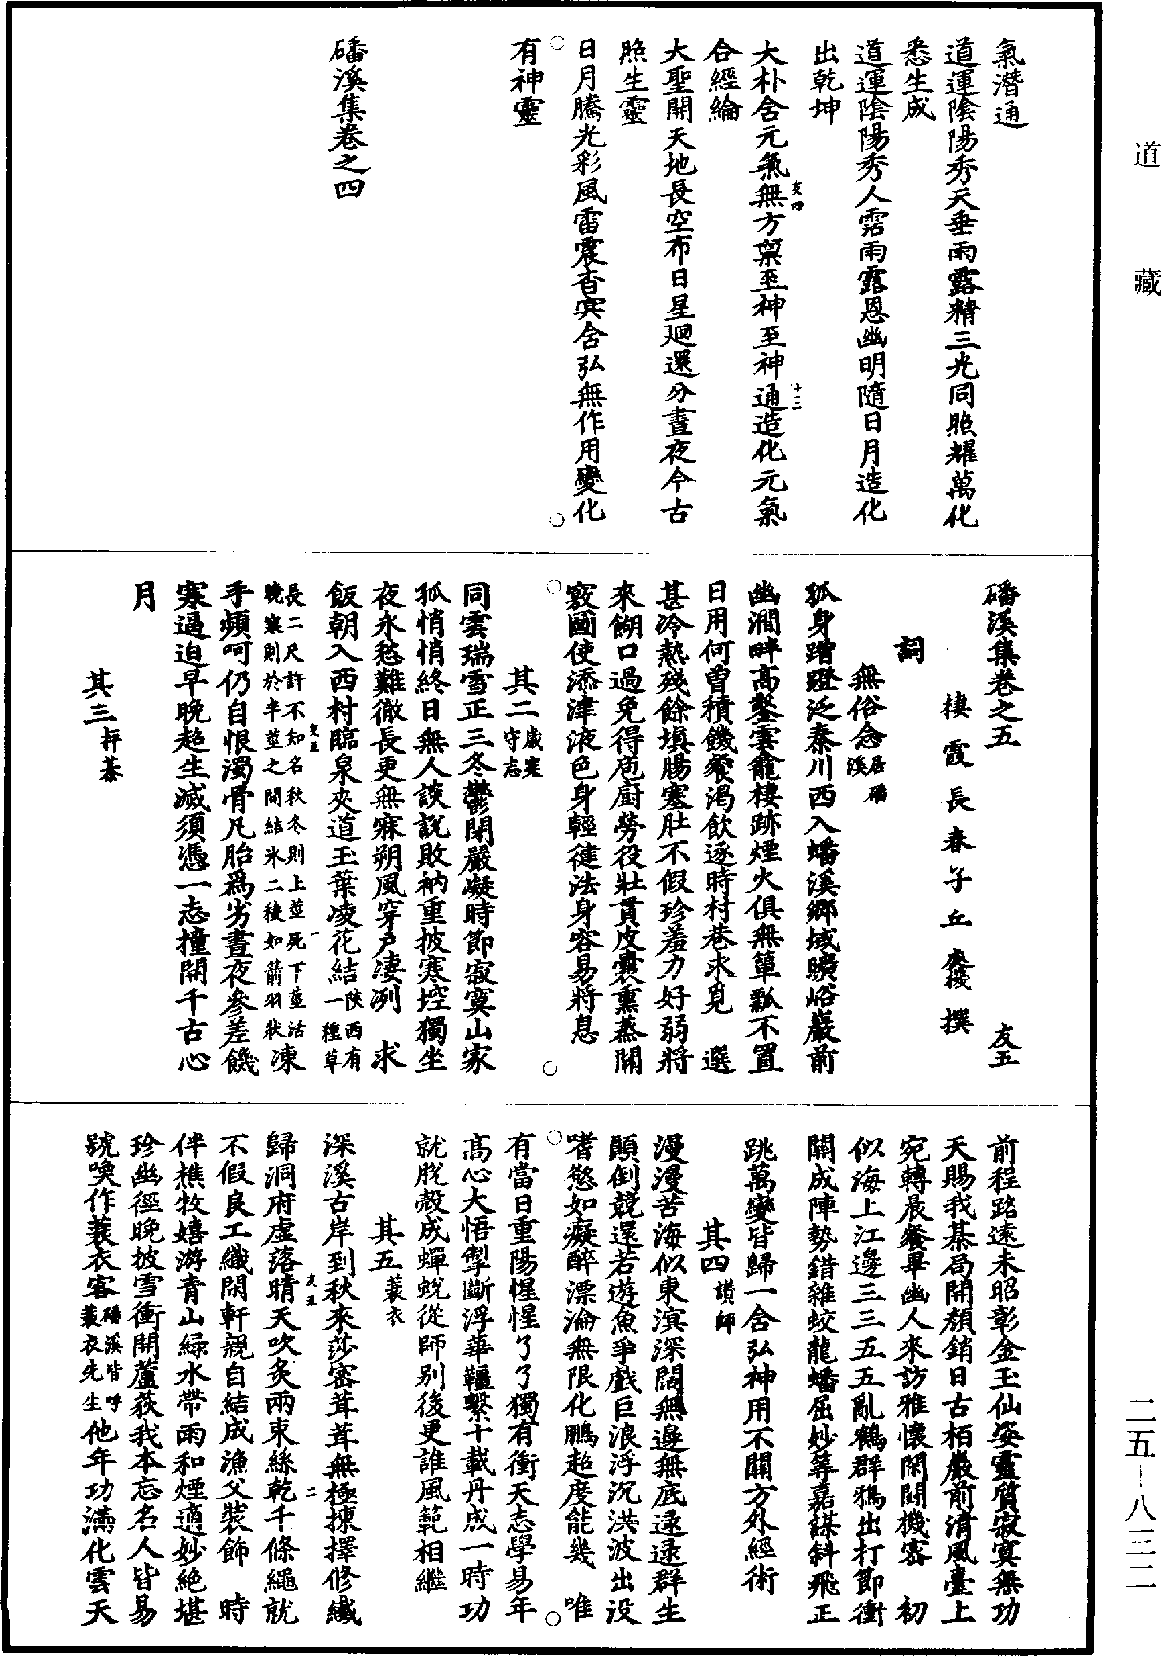 道藏
氣潛通
道運陰陽秀天垂雨露精三光同照耀萬化
悉生成
道運陰陽秀人霑雨露恩幽明隨日月造化
出乾坤
友四
十三
大朴含元氣無方稟至神至神通造化元氣
合經綸
大聖開天地長空布日星廻還分晝夜今古
照生靈
日月騰光彩風雷震杳冥含弘無作用變化
有神靈
磻溪集卷之四
磻溪集卷之五
友五
棲霞長春子丘處機撰
詞
無俗念居磻溪
孤身蹭蹬泛秦川西入蟠溪鄉域曠峪巖前
幽澗畔高鑿雲龕棲跡煙火俱無簞瓢不置
日用何曾積饑飡渴飲逐時村巷求覓 選
甚冷熱殘餘填腸塞肚不假珍羞力好弱將
來餬口過免得庖廚勞役壯貫皮囊熏蒸關
竅圖使添津液色身輕健法身容易將息
其二歲寒守志
同雲瑞雪正三冬鬱閉嚴凝時節寂寞山家
孤悄悄終日無人談說敗衲重披寒埪獨坐
夜永愁難徹長更無寐朔風穿戶凄冽 求
飯朝入西村臨泉夾道玉葉凌花結陝西有一種草
友五
一
長二尺許不知名秋冬則上莖死下莖活晚寒則於半莖之間結氷二稜如箭羽狀凍
手頻呵仍自恨濁骨凡胎為劣晝夜參差饑
寒逼迫早晚超生滅須憑一志撞開千古心
月
其三枰棊
前程路遠未昭彰金玉仙姿靈質寂寞無功
天賜我棊局開顏銷日古栢巖前清風臺上
宛轉晨飡畢幽人來訪雅懷閑鬭機密 初
似海上江邊三三五五亂鶴群鴉出打節衝
關成陣勢錯雜蛟龍蟠屈妙筭嘉謀斜飛正
跳萬變皆歸一含弘神用不關方外經術
其四讚師
漫漫苦海似東溟深闊無邊無底逐逐群生
顛倒競還若遊魚爭戲巨浪浮沉洪波出沒
嗜慾如癡醉漂淪無限化鵬超度能幾 唯
有當日重陽惺惺了了獨有衝天志學易年
高心大悟掣斷浮華韁繫十載丹成一時功
就脫殼成蟬蛻從師別後更誰風範相繼
其五蓑衣
深溪古岸到秋來莎密茸茸無極揀擇修纖
友五
二
歸洞府虛落晴天吹炙兩束絲乾千條繩就
不假良工織閑軒親自結成漁父裝飾 時
伴樵牧嬉游青山綠水帶雨和煙適妙絶堪
珍幽徑晚披雪衝開蘆荻我本忘名人皆易
號喚作蓑衣客磻溪皆呼蓑衣先生他年功滿化雲天
二五—八三二